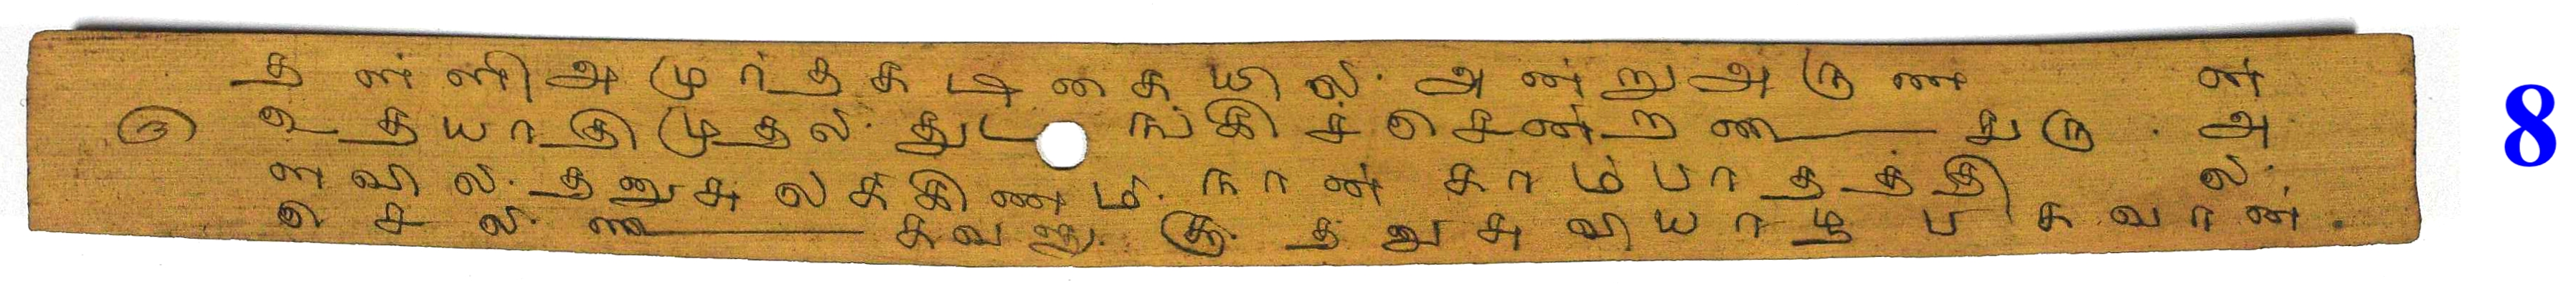 தன்னிஅமுர்தகடிகையில். அன்றுஅருணன்
௫ உதயாதிமுதல். துடங்கிச்சென்ற துரு. அ
ளவில். தனுசு லக்கிணம். நான் காம்பாதத்தில்.
செல் தனுசு வியாழ பகவான்.
8